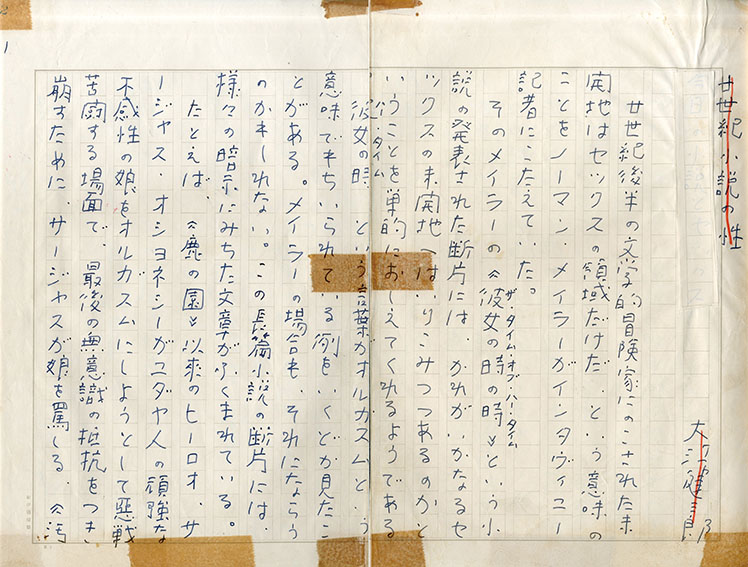 廿世紀小説の性
大江健三郎
廿世紀後半の文学的冒険家にのこされた未
開地はセックスの領域だけだ、という意味の
ことをノーマン・メイラーがインタヴィユー
記者にこたえていた。
そのメイラーの《彼女の時の時》という小
ザ・タイム・オブ・ハー・タイム
説の発表された断片には、かれがいかなるセ
ックスの未開地へはいりこみつつあるのかと
いうことを単的におしえてくれるようである
。彼女の時、という言葉がオルガスムという
タイム
意味でもちいられている例をいくどか見たこ
とがある。メイラーの場合も、それにならう
のかもしれない。この長篇小説の断片には、
様々の暗示にみちた文章がふくまれている。
たとえば、《鹿の園》以来のヒーロオ、サ
ージャス・オショネシーがユダヤ人の頑強な
不感性の娘をオルガスムにしようとして悪戦
苦闘する場面で、最後の無意識の抵抗をつき
崩すために、サージャスが娘を罵しる。《汚
1